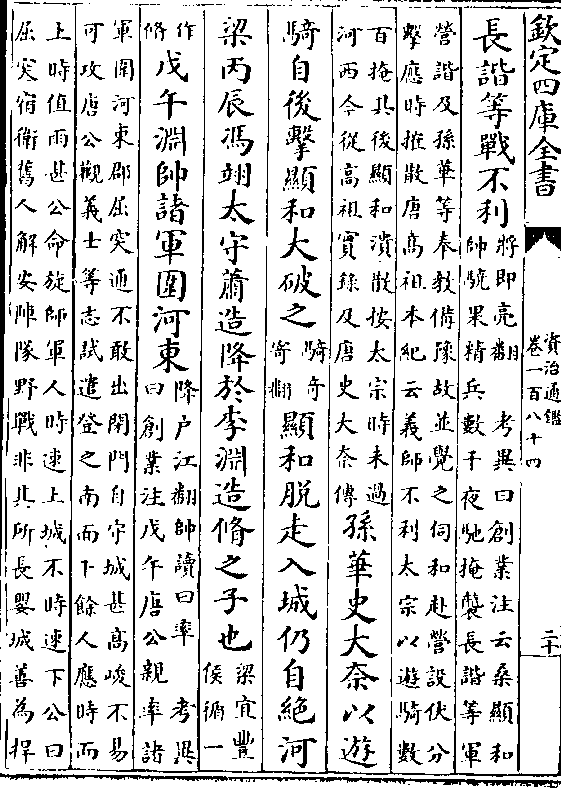 欽定四庫全書
資治通鑑
卷一百八十四
二十
長諧等戰不利
將即亮翻 考異曰創業注云桑顯和
帥驍果精兵數千夜馳掩襲長諧等軍
營諧及孫華等奉教備豫故並覺之伺和赴營設伏分
擊應時摧散唐高祖本紀云義師不利太宗以遊騎數
百掩其後顯和潰散按太宗時未過
河西今從高祖實錄及唐史大奈傳
孫華史大奈以遊
騎自後擊顯和大破之
騎奇
寄翻
顯和脫走入城仍自絕河
梁丙辰馮翊太守蕭造降於李淵造脩之子也
梁宜豐
侯循一
作
脩
戊午淵帥諸軍圍河東
降户江翻帥讀曰率 考異
曰創業注戊午唐公親率諸
軍圍河東郡屈突通不敢出閉門自守城甚高峻不易
可攻唐公觀義士等志試遣登之南而下餘人應時而
上時值雨甚公命旋師軍人時速上城不時速下公曰
屈突宿衛舊人解安陣隊野戰非其所長嬰城善為捍